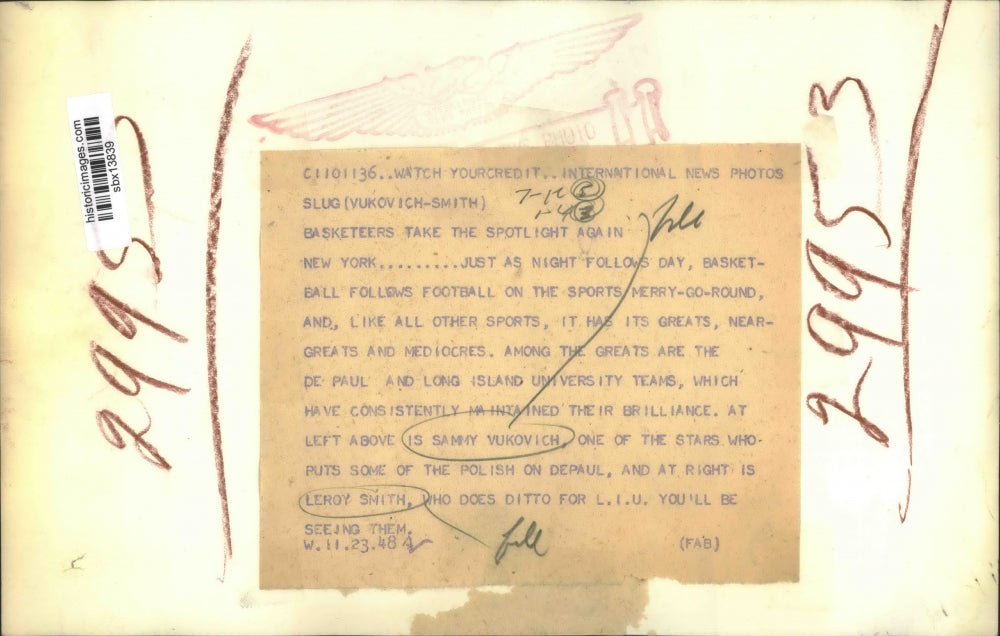 historicimages.com
sbx13839
2995
2993
PHOTO
C1101136..WATCH YOURCREDIT..INTERNATIONAL NEWS PHOTOS
SLUG(VUKOVICH-SMITH)
BASKETEERS TAKE THE SPOTLIGHT AGAIN
fill
NEW YORK.........JUST AS NIGHT FOLLOWS DAY, BASKET-
BALL FOLLOWS FOOTBALL ON THE SPORTS MERRY-GO-ROUND,
AND, LIKE ALL OTHER SPORTS, IT HAS ITS GREATS, NEAR-
GREATS AND MEDIOCRES. AMONG THE GREATS ARE THE
DE PAUL AND LONG ISLAND UNIVERSITY TEAMS, WHICH
HAVE CONSISTENTLY MAINTAINED THEIR BRILLIANCE. AT
LEFT ABOVE IS SAMMY VUKOVICH, ONE OF THE STARS WHO
PUTS SOME OF THE POLISH ON DEPAUL, AND AT RIGHT IS
LEROY SMITH, WHO DOES DITTO FOR L.I.U. YOU'LL BE
SEEING THEM.
W.11.23.48 (FAB)
fill